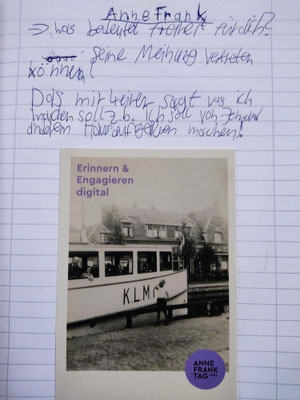 Anne Frank
⇒ was bedeutet Freiheit für dich?
seine Meinung vertreten
können!
Das mir keiner sagt was ich
machen soll z.b. ich soll von
anderen Hausaufgaben machen!
Erinnern &
Engagieren
digital
K.L.M
ANNE
FRANK
TAG